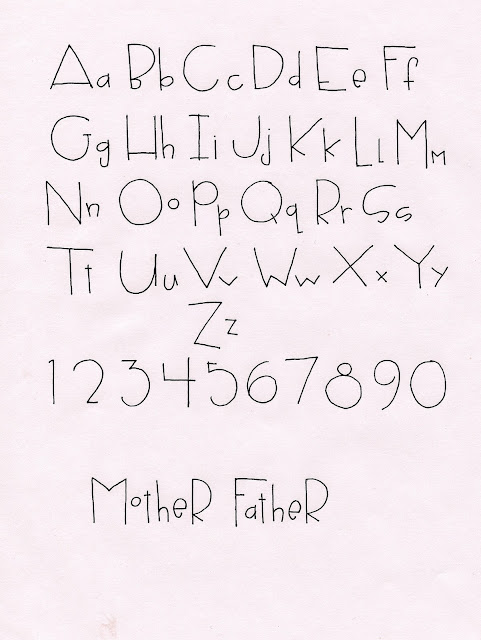 Aa Bb Cc Dd Ee Ff
Gg Hh Ii Jj Kk Ll Mm
Nn Oo Pp Qq Rr Ss
Tt Uu Vv Ww Xx Yy
Zz
1234567890
MotheR FatheR